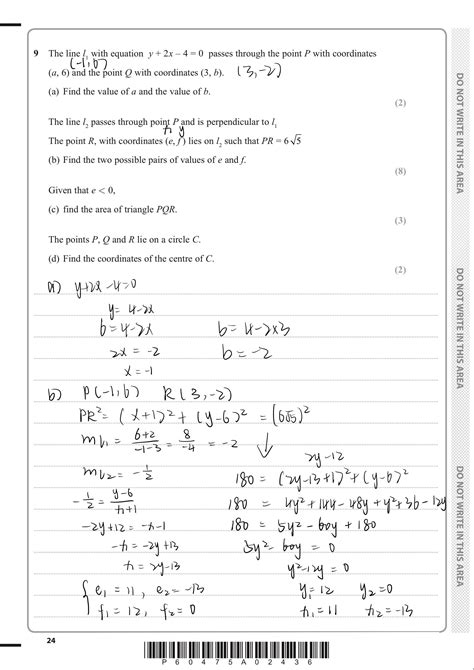 9 The line l₁ with equation y + 2x – 4 = 0 passes through the point P with coordinates
(-1, 6)
(a, 6) and the point Q with coordinates (3, b). (3, -2)
(a) Find the value of a and the value of b.
(2)
The line l₂ passes through point P and is perpendicular to l₁
x y
The point R, with coordinates (e, f) lies on l₂ such that PR = 6√5
(b) Find the two possible pairs of values of e and f.
(8)
Given that e < 0,
(c) find the area of triangle PQR.
(3)
The points P, Q and R lie on a circle C.
(d) Find the coordinates of the centre of C.
(2)
a) y+2x-4=0
y = 4-2x
6=4-2x b=4-2x3
2x = -2 b=-2
x = -1
b) P(-1,6) R(3,-2)
PR²= (x+1)²+(y-6)² = (6√5)²
ml₁ = 6+2/-1-3 = 8/-4 = -2
2y-12
ml₂ = -1/2 180 = (2y-13+1)²+(y-6)²
-1/2 = y-6/x+1 180 = 4y²+144-48y+y²+36-12y
-2y+12 = -x-1 180 = 5y²-60y+180
-x = -2y+13 5y²-60y=0
x = 2y-13 y²-12y=0
{ e₁ = 11, e₂ = -13 y₁=12 y₂=0
f₁ = 12, f₂ = 0 x₁=11 x₂=-13
24
P60475A02436
DO NOT WRITE IN THIS AREA
DO NOT WRITE IN THIS AREA
DO NOT WRITE IN THIS AREA